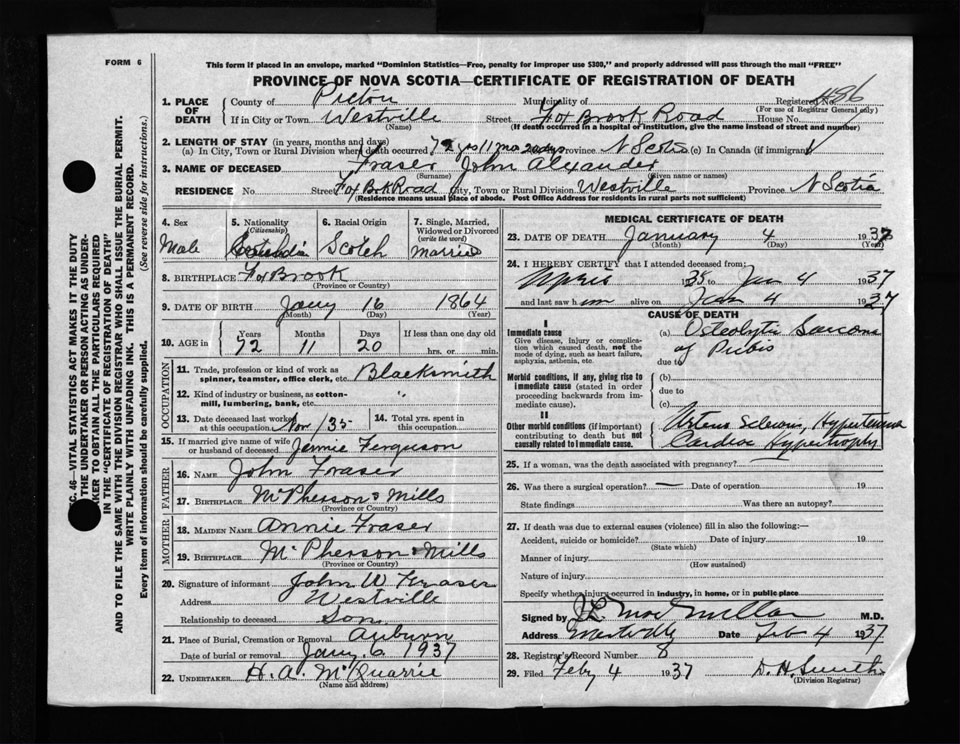 FORM 6
This form if placed in an envelope, marked "Dominion Statistics—Free, penalty for improper use $300," and properly addressed will pass through the mail "FREE"
PROVINCE OF NOVA SCOTIA—CERTIFICATE OF REGISTRATION OF DEATH
1. PLACE OF DEATH
County of Pictou Municipality of Registered No.
(For use of Registrar General only)
If in City or Town Westville Street Fox Brook Road House No.
(Name) (If death occurred in a hospital or institution, give the name instead of street and number)
2. LENGTH OF STAY (in years, months and days)
(a) In City, Town or Rural Division where death occurred 72 yrs 11 mo 20 dys Province N Scotia (c) In Canada (if immigrant)
3. NAME OF DECEASED Fraser John Alexander
(Surname) (Given name or names)
RESIDENCE No. Street Fox Bk Road City, Town or Rural Division Westville Province N Scotia
(Residence means usual place of abode. Post Office Address for residents in rural parts not sufficient)
4. Sex
Male
5. Nationality
(Citizenship)
6. Racial Origin
Scotch
7. Single, Married, Widowed or Divorced
(write the word)
Married
8. BIRTHPLACE Fox Brook
(Province or Country)
9. DATE OF BIRTH Jany 16 1864
(Month) (Day) (Year)
10. AGE in
Years Months Days If less than one day old
72 11 20 hrs. or min.
OCCUPATION
11. Trade, profession or kind of work as spinner, teamster, office clerk, etc. Blacksmith
12. Kind of industry or business, as cotton-mill, lumbering, bank, etc. "
13. Date deceased last worked at this occupation Nov/35
14. Total yrs. spent in this occupation
15. If married give name of wife or husband of deceased Jennie Ferguson
FATHER
16. NAME John Fraser
17. BIRTHPLACE McPherson's Mills
(Province or Country)
MOTHER
18. MAIDEN NAME Annie Fraser
19. BIRTHPLACE McPherson's Mills
(Province or Country)
20. Signature of informant John W Fraser
Address Westville
Relationship to deceased Son
21. Place of Burial, Cremation or Removal Auburn
Date of burial or removal Jany. 6 1937
22. UNDERTAKER H. A. McQuarrie
(Name and address)
MEDICAL CERTIFICATE OF DEATH
23. DATE OF DEATH January 4 1937
(Month) (Day) (Year)
24. I HEREBY CERTIFY that I attended deceased from:
April 1935 to Jan 4 1937
and last saw him alive on Jan 4 1937
CAUSE OF DEATH
I
Immediate cause
Give disease, injury or complication which caused death, not the mode of dying, such as heart failure, asphyxia, asthenia, etc.
(a) Osteolytic Sarcoma
of Pubis
due to
Morbid conditions, if any, giving rise to immediate cause (stated in order proceeding backwards from immediate cause).
(b)
due to
(c)
II
Other morbid conditions (if important) contributing to death but not causally related to immediate cause.
Arterio Sclerosis, Hypertension
Cardiac Hypertrophy
25. If a woman, was the death associated with pregnancy? —
26. Was there a surgical operation? — Date of operation 19
State findings Was there an autopsy?
27. If death was due to external causes (violence) fill in also the following:—
Accident, suicide or homicide? Date of injury 19
(State which)
Manner of injury
(How sustained)
Nature of injury
Specify whether injury occurred in industry, in home, or in public place
Signed by M.D.
Address Westville Date Feb 4 1937
28. Registrar's Record Number 8
29. Filed Feby 4 1937 D. H. Smith
(Division Registrar)
SEC. 46—VITAL STATISTICS ACT MAKES IT THE DUTY
OF THE UNDERTAKER OR PERSON ACTING AS UNDERTAKER TO OBTAIN ALL THE PARTICULARS REQUIRED
IN THE "CERTIFICATE OF REGISTRATION OF DEATH"
AND TO FILE THE SAME WITH THE DIVISION REGISTRAR WHO SHALL ISSUE THE BURIAL PERMIT.
WRITE PLAINLY WITH UNFADING INK. THIS IS A PERMANENT RECORD.
Every item of information should be carefully supplied. (See reverse side for instructions.)